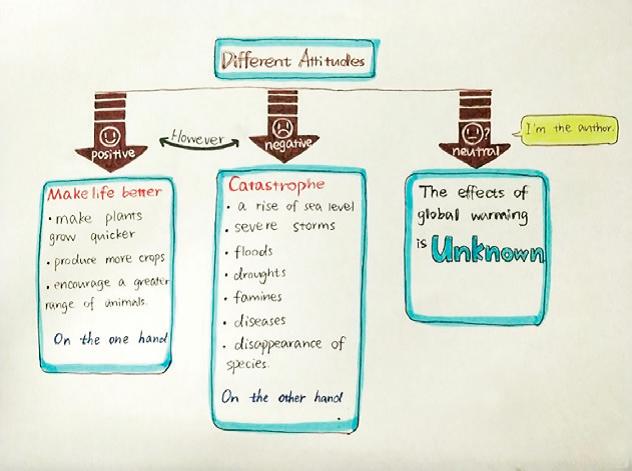 Different Attitudes
positive
However
negative
neutral
?
I'm the author.
Make life better
• make plants
grow quicker
• produce more crops
• encourage a greater
range of animals.
On the one hand
Catastrophe
• a rise of sea level
• severe storms
• floods
• droughts
• famines
• diseases
• disappearance of
species.
On the other hand
The effects of
global warming
is Unknown